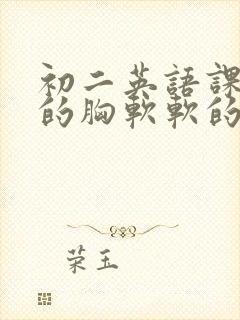 初二英語課
的胸軟軟的
荣玉